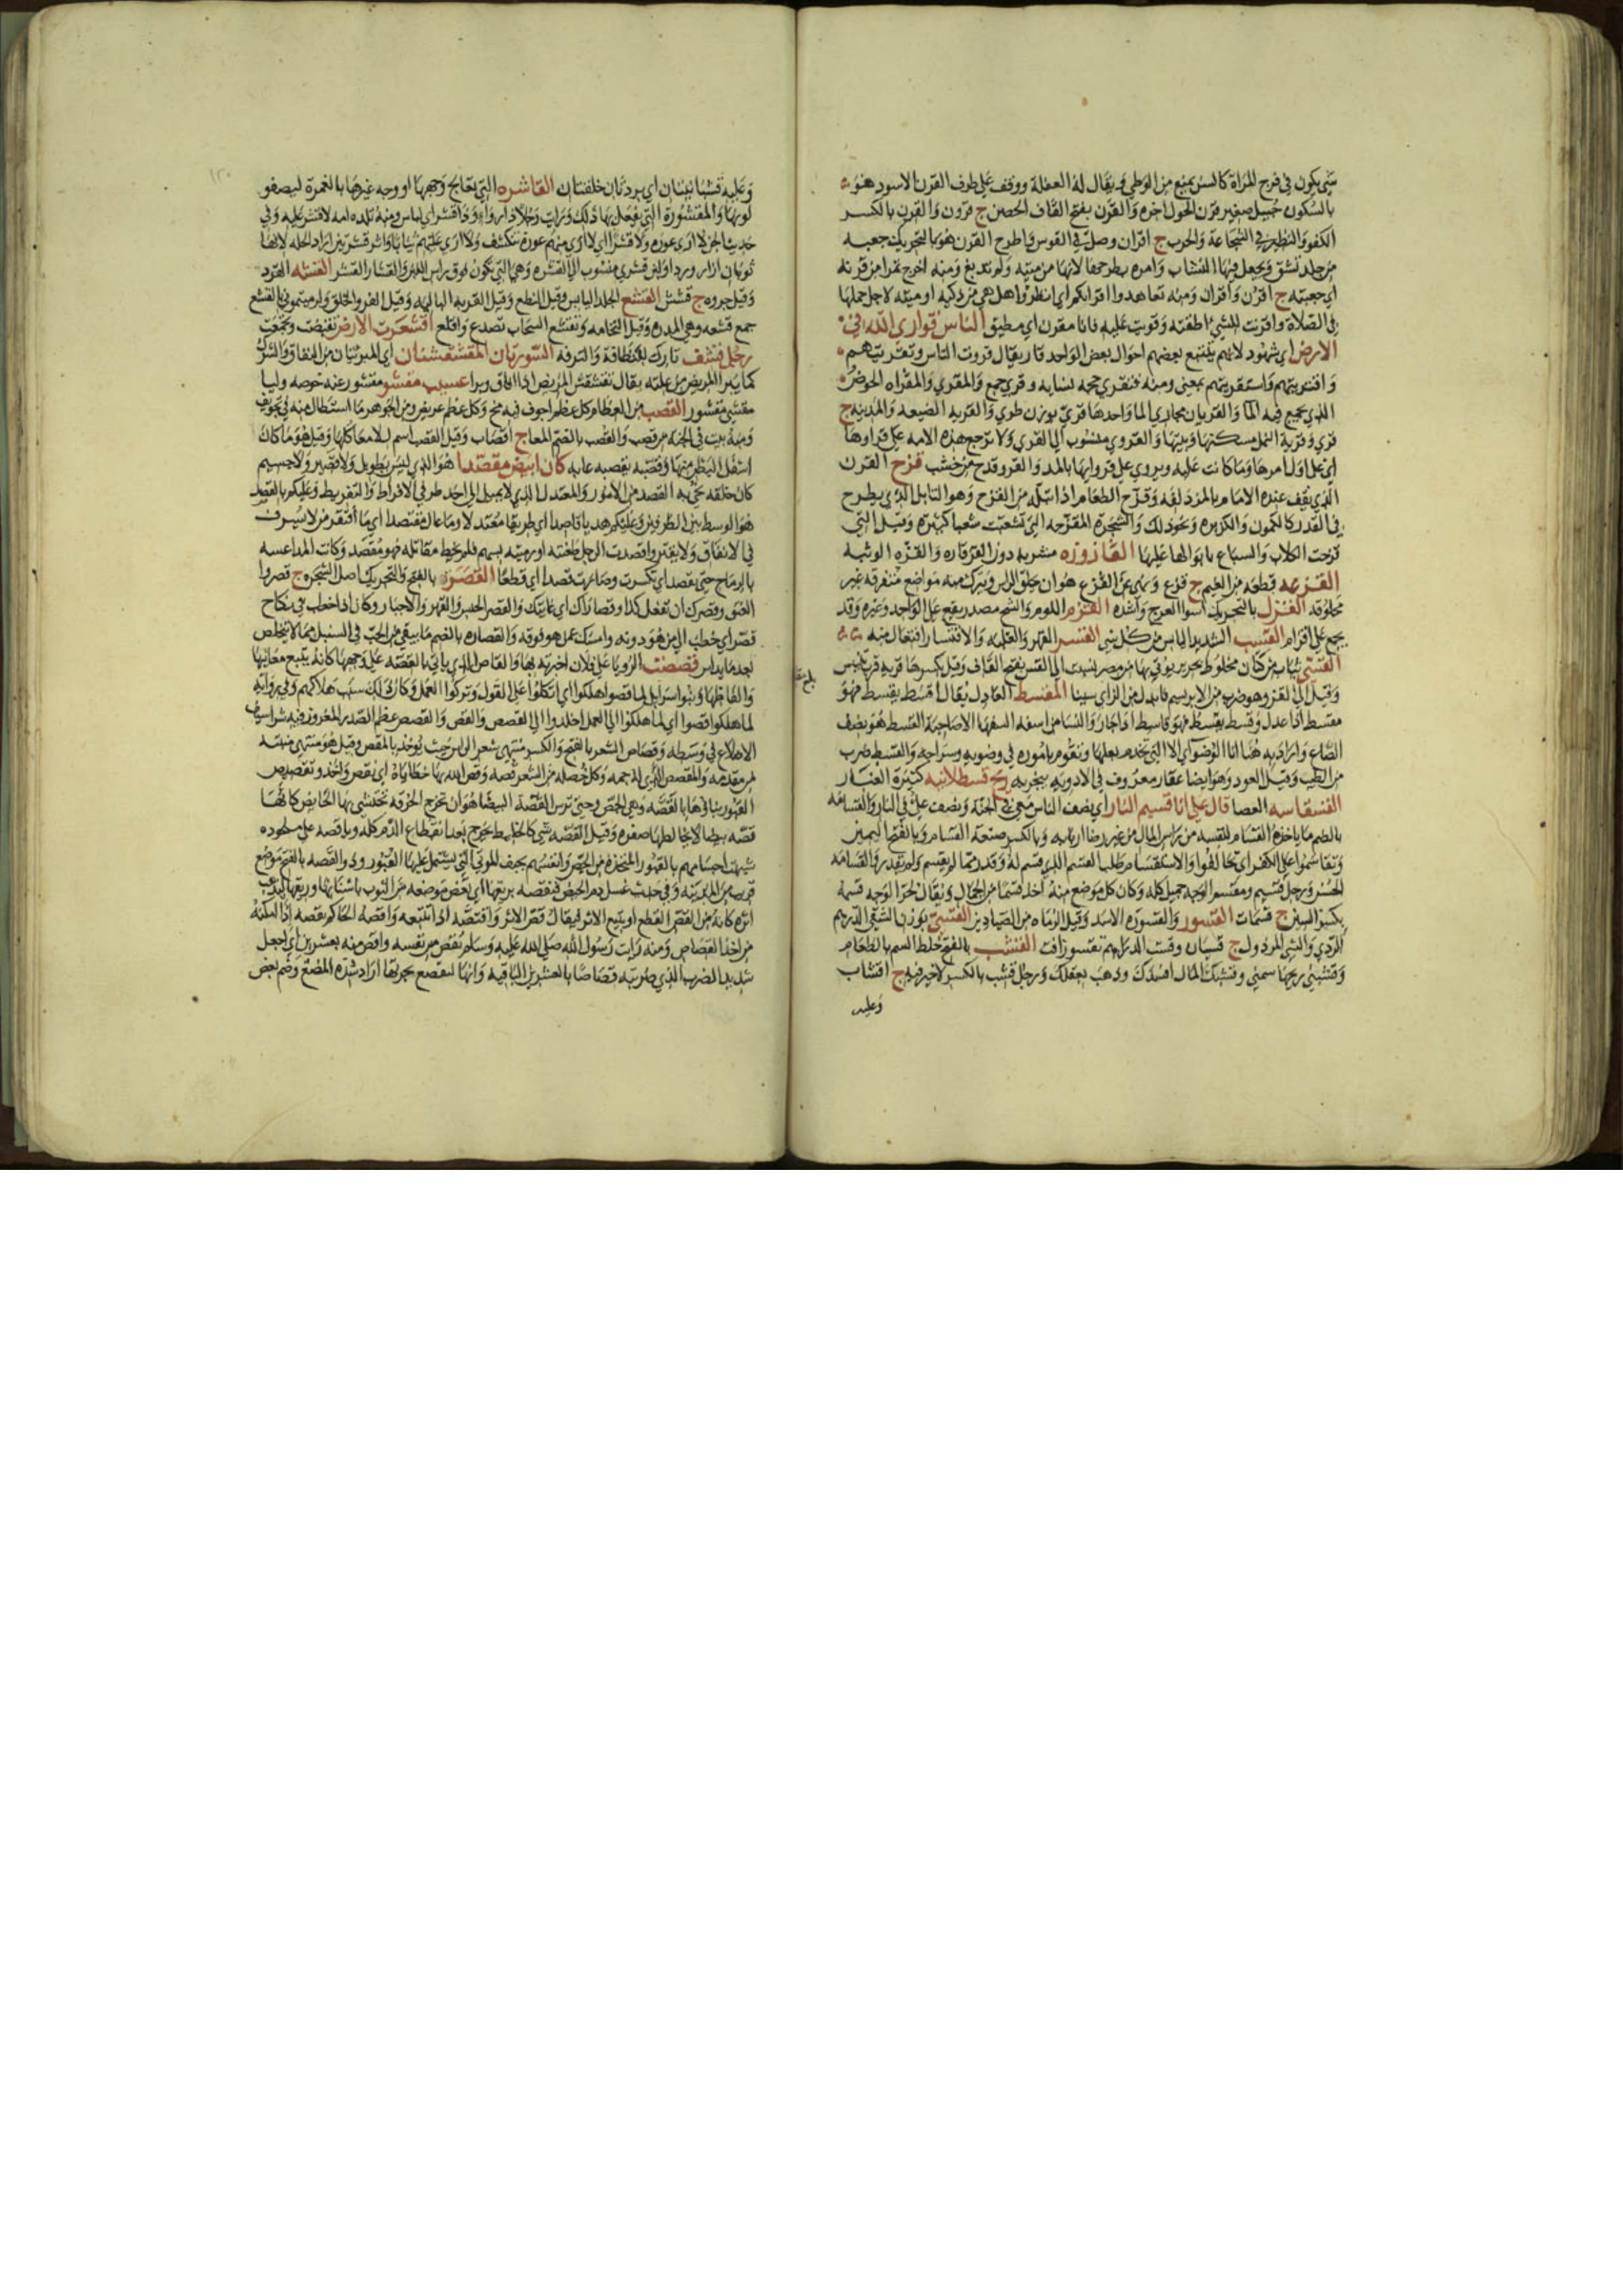 شي يكون في فرج المراة كالسن يمنع من الوطي ويقال له العفلة ووقف على طرف القرن الاسود هو
بالسكون جبيل صغير قرن الحول اخره والقرن بفتح القاف الحصن ج قرون والقرن بالكسر
الكفو والنظير في الشجاعة والحرب ج اقران وصل في القوس واطرح القرن هو بالتحريك جعبه
من جلد تشق ويجعل فيها النشاب وامره بطرحها لانها من ميته ولم تدبغ ومنه اخرج تمرا من قرنه
اي جعبته ج اقرن واقران ومنه تعاهدوا اقرانكم اي انظروا هل هي من ذكيه او ميته لاجل حملها
في الصلاة واقرنت للشي اطقته وقويت عليه فانا مقرن اي مطيق الناس قواري الله في
الارض اي شهود لانهم يتتبع بعضهم احوال بعض الواحد قار يقال قروت الناس وتقريتهم
واقتريتهم واستقريتهم بمعنى ومنه فتقرى حجر نسايه وقرى جمع والمقرى والمقراه الحوض
الذي يجتمع فيه الما والقريان مجاري الما واحدها قري بوزن طري والقريه الضيعه والمدينه ج
قرى وقرية النمل مسكنها وبيتها والقروي منسوب الى القرى ولا ترجع هذه الامه على قرواها
اي على اول امرها وما كانت عليه ويروى على قروايها بالمد والقرو قدح من خشب قزح القرن
الذي يقف عنده الامام بالمزدلفه وقزح الطعام اذا من القزح وهو التابل الذي يطرح
في القدر كالكمون والكزبره ونحو ذلك والشجرة المقزحه التي تشعبت شعبا كثيره وقيل التي
قزحت الكلاب والسباع بابوالها عليها القازوزه مشربه دون القرقاره والقزه الوثبه
القزعه قطعه من الغيم ج قزع ونهى عن القزع هو ان يحلق الراس ويترك منه مواضع متفرقه غير
محلوقه القزل بالتحريك اسوا العرج واشده القزم اللوم والشح مصدر يقع على الواحد وغيره وقد
يجمع على اقزام القسب الشديد اليابس من كل شي القسر القهر والغلبه والاقتسار افتعال منه
القسي ثياب من كتان مخلوط بحرير يوتى بها من مصر نسبت الى القس بفتح القاف وقيل بكسرها قريه قرب تنيس
وقيل الى القز وهو ضرب من الابريسم فابدل من الزاي سينا المقسط العادل يقال اقسط يقسط فهو
مقسط اذا عدل وقسط يقسط فهو قاسط اذا جار والنسا من اسفه السفها الا صاحبة القسط هو نصف
الصاع واراد به هنا انا الوضو اي الا التي تخدم بعلها وتقوم باموره في وضويه وسراجه والقسط ضرب
من الطيب وقيل العود وهو ايضا عقار معروف في الادويه يبخر به ريح قسطلانيه كثيرة الغبار
القسقاسه العصا قال علي انا قسيم النار اي نصف الناس معي في الجنة ونصف علي في النار والقسامه
بالضم ما ياخذه القسام لنفسه من راس المال من غير رضا اربابه وبالكسر صنعة القسام وبالفتح اليمين
وتقاسموا على الكفر اي تحالفوا والاستقسام طلب القسم الذي قسم له وقدر مما لم يقسم ولم يقدر والقسامه
الحسن ورجل قسيم ومقسم الوجه جميل كله وكان كل موضع منه اخذ قسما من الجمال ويقال لحر الوجه قسمه
بكسر السين ج قسمات القسور والقسوره الاسد وقيل الرماه من الصيادين القسي بوزن الشقي الدرهم
الردي والشي المرذول ج قسيان وقست الدراهم تقسو زافت القشب بالفتح خلط السم بالطعام
وقشبني ريحها سمني وقشبك المال افسدك وذهب بعقلك ورجل قشب بالكسر لا خير فيه ج اقشاب
وعليه
وعليه قشبانيتان اي بردتان خلقتان القاشره التي تعالج وجهها او وجه غيرها بالغمرة ليصفو
لونها والمقشورة التي يفعل بها ذلك ورايت رجلا ذا رواء وذا قشر اي لباس ومنه تلده امه لا قشر عليه وفي
حديث الجن لا ارى عورة ولا قشرا اي لا ارى منهم عورة تنكشف ولا ارى عليهم ثيابا واشر قشرتين اراد الحله لانها
ثوبان ازار وردا ولبن قشري منسوب الى القشره وهي التي تكون فوق راس اللبن والقشار القشر القشه القرد
وقيل جروه ج قشش القشع الجلد اليابس وقيل النطع وقيل القربه الباليه وقيل الفرو الخلق ولرميتموني بالقشع
جمع قشعه وهي المدره وقيل النخامه وتقشع السحاب تصدع واقلع اقشعرت الارض تقبضت وتجمعت
رجل قشف تارك للنظافة والترفه السورتان المقشقشتان اي المبرئتان من النفاق والشرك
كما يبرا المريض من علته يقال تقشقش المريض اذا افاق وبرا عسيب مقشو مقشور عنه خوصه وليا
مقشي مقشور القصب من العظام كل عظم اجوف فيه مخ وكل عظم عريض ومن الجوهر ما استطال منه في تجويف
ومنه بيت في الجنة من قصب والقصب بالضم المعا ج اقصاب وقيل القصب اسم للامعا كلها وقيل هو ما كان
اسفل البطن منها وقصبه يقصبه عابه كان ابيض مقصدا هو الذي ليس بطويل ولا قصير ولا جسيم
كان خلقه نحي به القصد من الامور والمعتدل الذي لا يميل الى احد طرفي الافراط والتفريط وعليكم بالقصد
هو الوسط بين الطرفين وعليكم هديا قاصدا اي طريقا معتدلا وما عال مقتصد اي ما افتقر من لا يسرف
في الانفاق ولا يقتر واقصدت الرجل طعنته او رميته بسهم فلم يخط مقاتله فهو مقصد وكانت المداعسه
بالرماح حتى تقصد اي تكسرت وصارت قصدا اي قطعا القصره بالفتح والتحريك اصل الشجره ج قصروا
العنق وقصرك ان تفعل كذا وقصاراك اي غايتك والقصر الحبس والقهر والاجبار وكان اذا خطب في نكاح
قصر اي خطب الى من هو دونه وامسك عمن هو فوقه والقصاره بالضم ما يبقى من الحب في السنبل مما لا يتخلص
بعد ما يداس قصصت الرويا على فلان اخبرته بها والقاص الذي ياتي بالقصه على وجهها كانه يتتبع معانيها
والفاظها وبنوا اسرايل لما قصوا هلكوا اي اتكلوا على القول وتركوا العمل وكان ذلك سبب هلاكهم وفي روايه
لما هلكوا قصوا اي لما هلكوا الى العمل اخلدوا الى القصص والقص والقصص عظم الصدر المغروز فيه شراسيف
الاضلاع في وسطه وقصاص الشعر بالفتح والكسر منتهى شعر الراس حيث يوخذ بالمقص وقيل هو منتهى منبته
من مقدمه والمقصص الذي له جمه وكل خصله من الشعر قصه وقص الله بها خطاياه اي نقص واخذ وتقصيص
القبور بناوها بالقصه وهي الجص وحتى ترين القصة البيضا هو ان تخرج الخرقه تحتشي بها الحايض كانها
قصه بيضا لا يخالطها صفره وقيل القصه شي كالخيط يخرج بعد انقطاع الدم كله ويا قصه على ملحوده
شبهت اجسامهم بالقبور المتخذه من الجص وانفسهم بجيف الموتى التي تشتمل عليها القبور وذو القصه بالفتح موضع
قريب من المدينه وفي حديث غسل دم الحيض فتقصه بريقها اي تعض موضعه من الثوب باسنانها وريقها ليذهب
اثره كانه من القص القطع او تتبع الاثر يقال قص الاثر واقتصه اذا تتبعه واقصه الحاكم يقصه اذا امكنه
من اخذ القصاص ومنه رايت رسول الله صلى الله عليه وسلم يقص من نفسه واقص منه بعشرين اي اجعل
شدة الضرب الذي ضربته قصاصا بالعشرين الباقيه وانها لتقصع بجرتها اراد شدة المضغ وضم بعض